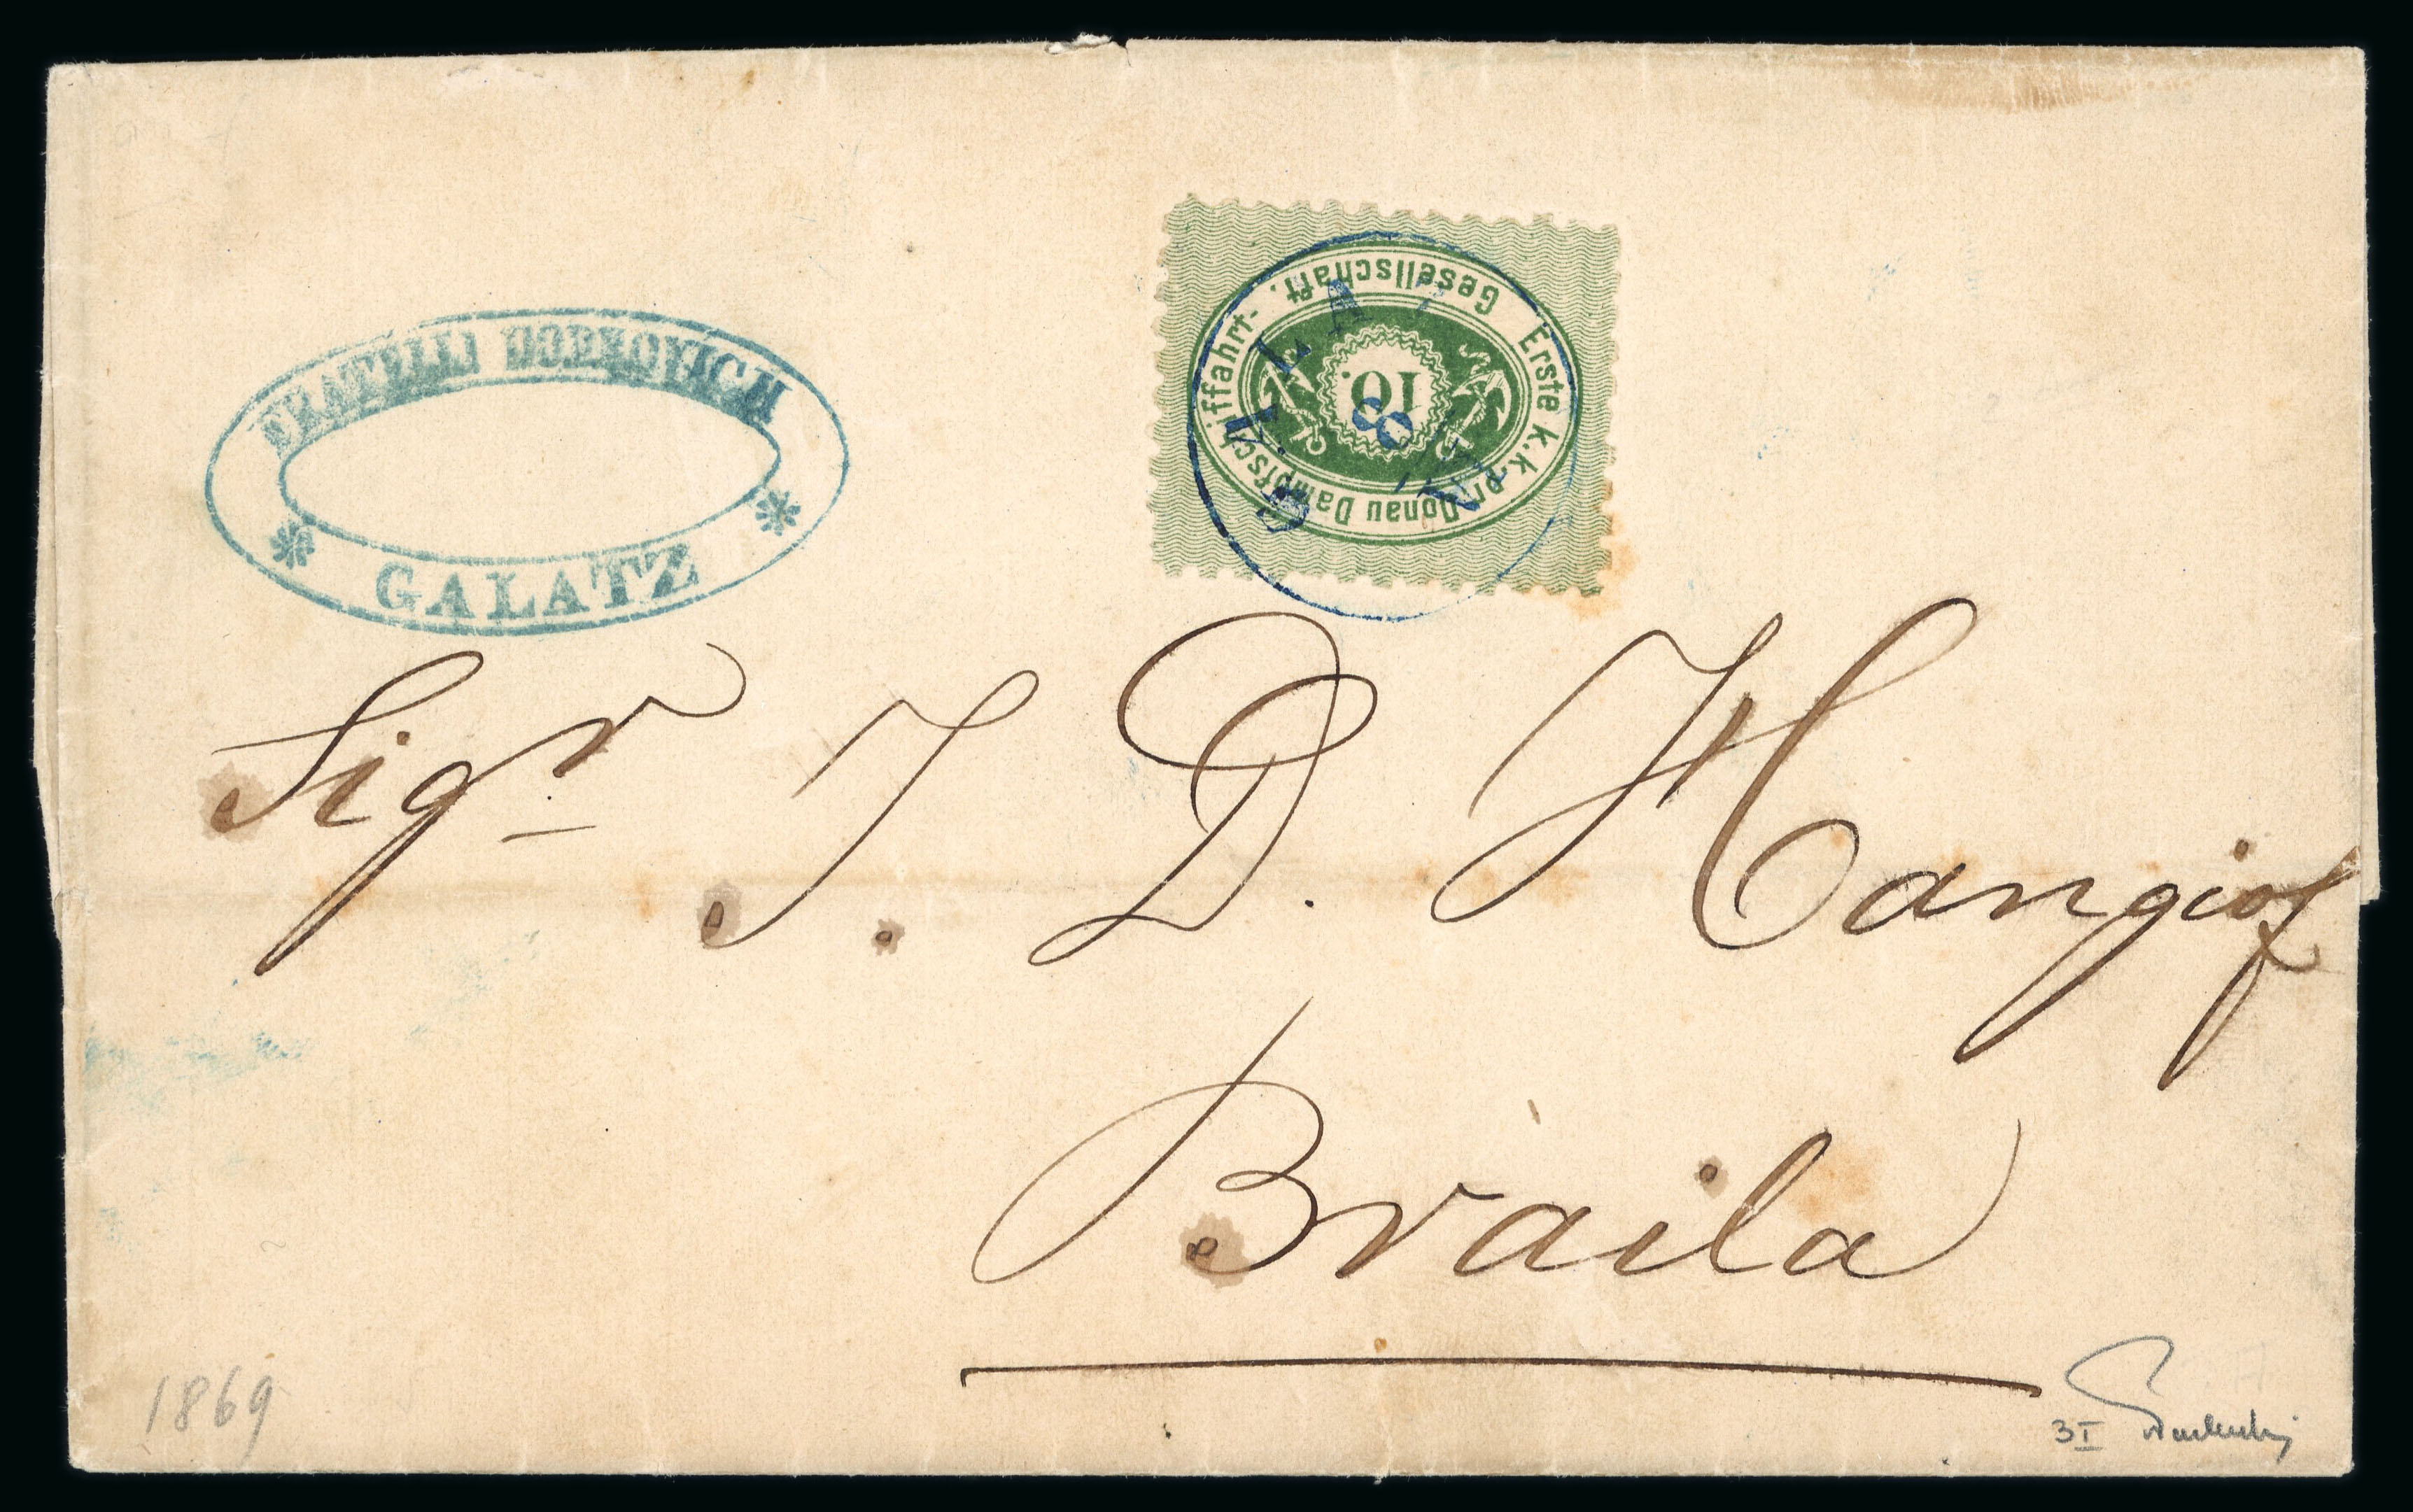 FRATELLI
GALATZ
Erste k.k.pr. Donau Dampfschiffahrt-
Gesellschaft.
10.
GALAZ
8
Sigr J. D. Hangiof
Braila
1869
3I